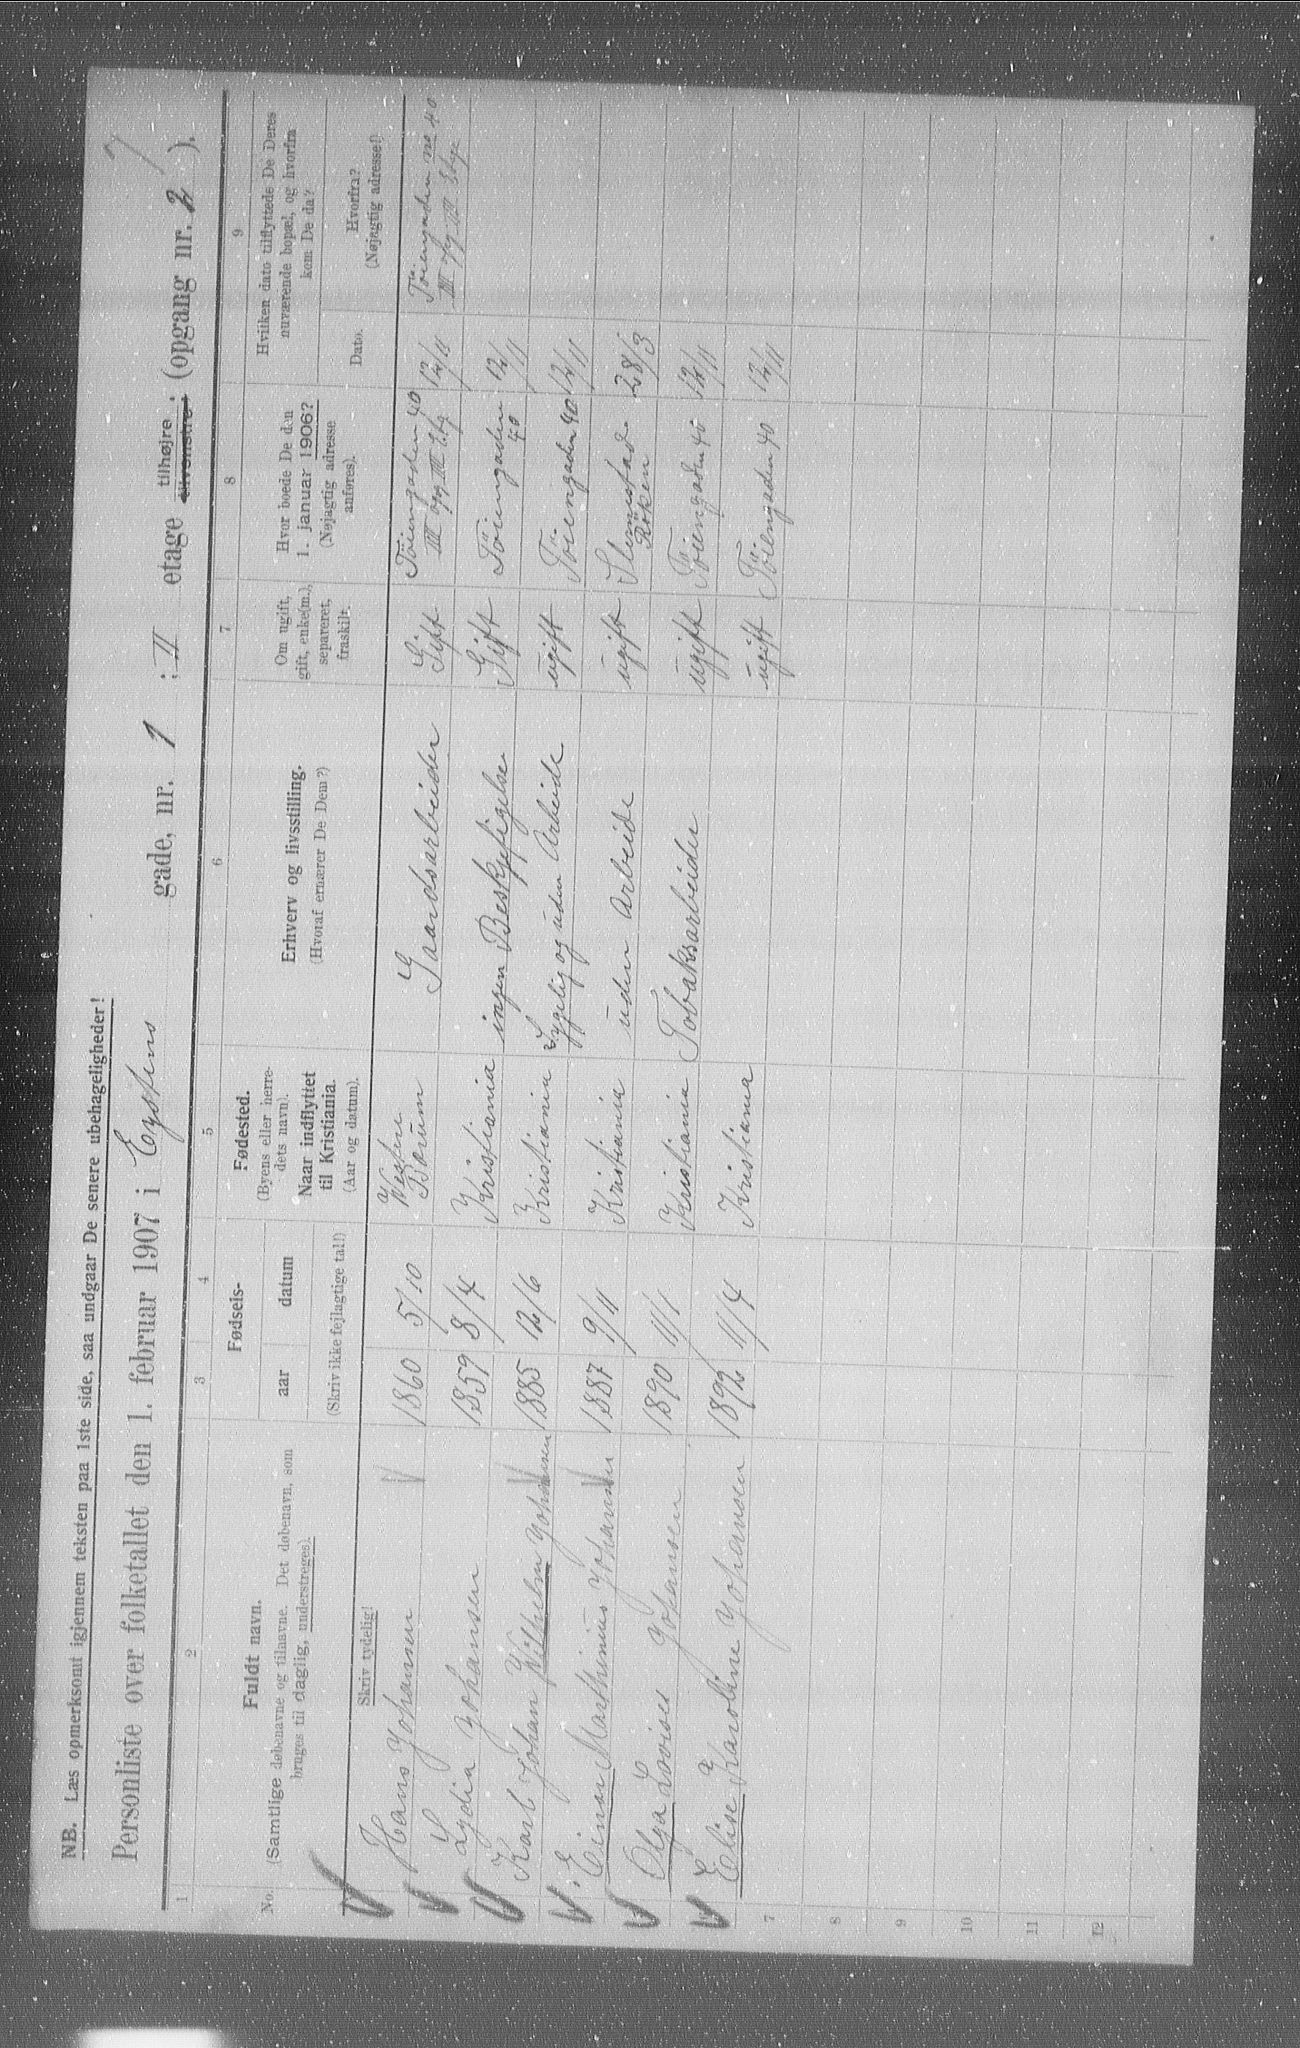 NB. Læs opmerksomt igjennem teksten paa 1ste side, saa undgaar De senere ubehageligheder!
Personliste over folketallet den 1. februar 1907 i Eystens gade, nr. 1 ; II etage tilhøjre tilvenstre; (opgang nr. 2 ).
1 2 3 4 5 6 7 8 9
No. Fuldt navn. (Samtlige døbenavne og tilnavne. Det døbenavn, som bruges til daglig, understreges).
Fødsels- aar datum
(Skriv ikke fejlagtige tal!)
Fødested. (Byens eller herredets navn). Naar indflyttet til Kristiania. (Aar og datum).
Erhverv og livsstilling. (Hvoraf ernærer De Dem?)
Om ugift, gift, enke(m.), separeret, fraskilt.
Hvor boede De den 1. januar 1906? (Nøjagtig adresse anføres).
Hvilken dato tilflyttede De Deres nuværende bopæl, og hvorfra kom De da?
Dato. Hvorfra? (Nøjagtig adresse!)
Skriv tydelig!
Hans Johansen 1860 5/10 Vestre Bærum Gaardsarbeider Gift Töiengaden 40 III opg III Etg 12/11 Töiengaden no 40 III opg III Etage
Lydia Johansen 1859 8/4 Kristiania ingen Beskjæftigelse Gift Töiengaden 40 12/11
Karl Johan Vilhelm Johansen 1885 12/6 Kristiania Sygelig og uden Arbeide ugift Töiengaden 40 12/11
Einar Marthinius Johansen 1887 9/11 Kristiania uden Arbeide ugift Röken 28/3
Olga Lovise Johansen 1890 11/1 Kristiania Tobaksarbeider ugift Töiengaden 40 12/11
Elise Karoline Johansen 1892 11/4 Kristiania ugift Töiengaden 40 12/11
7
8
9
10
11
12